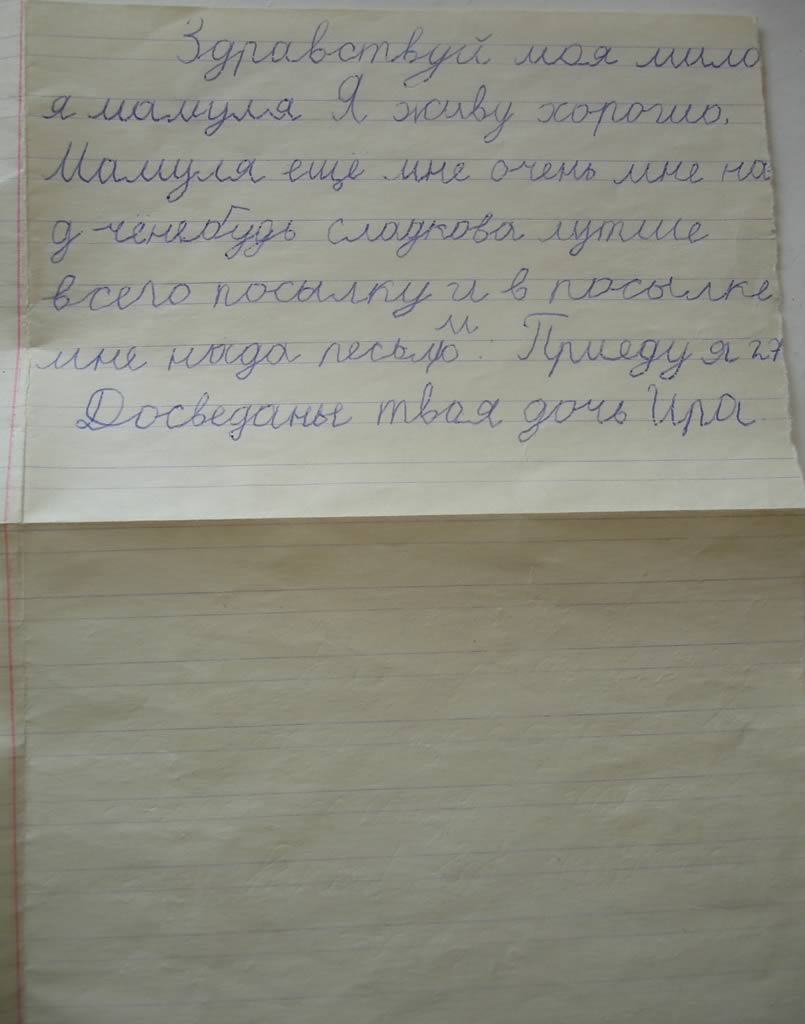 Здравствуй моя мило
я мамуля Я живу хорошо.
Мамуля ещё мне очень мне на
д чёнебудь сладкова лутше
всего посылку и в посылке
мне нада песьмо. Приеду я 27
Досведанье твоя дочь Ира